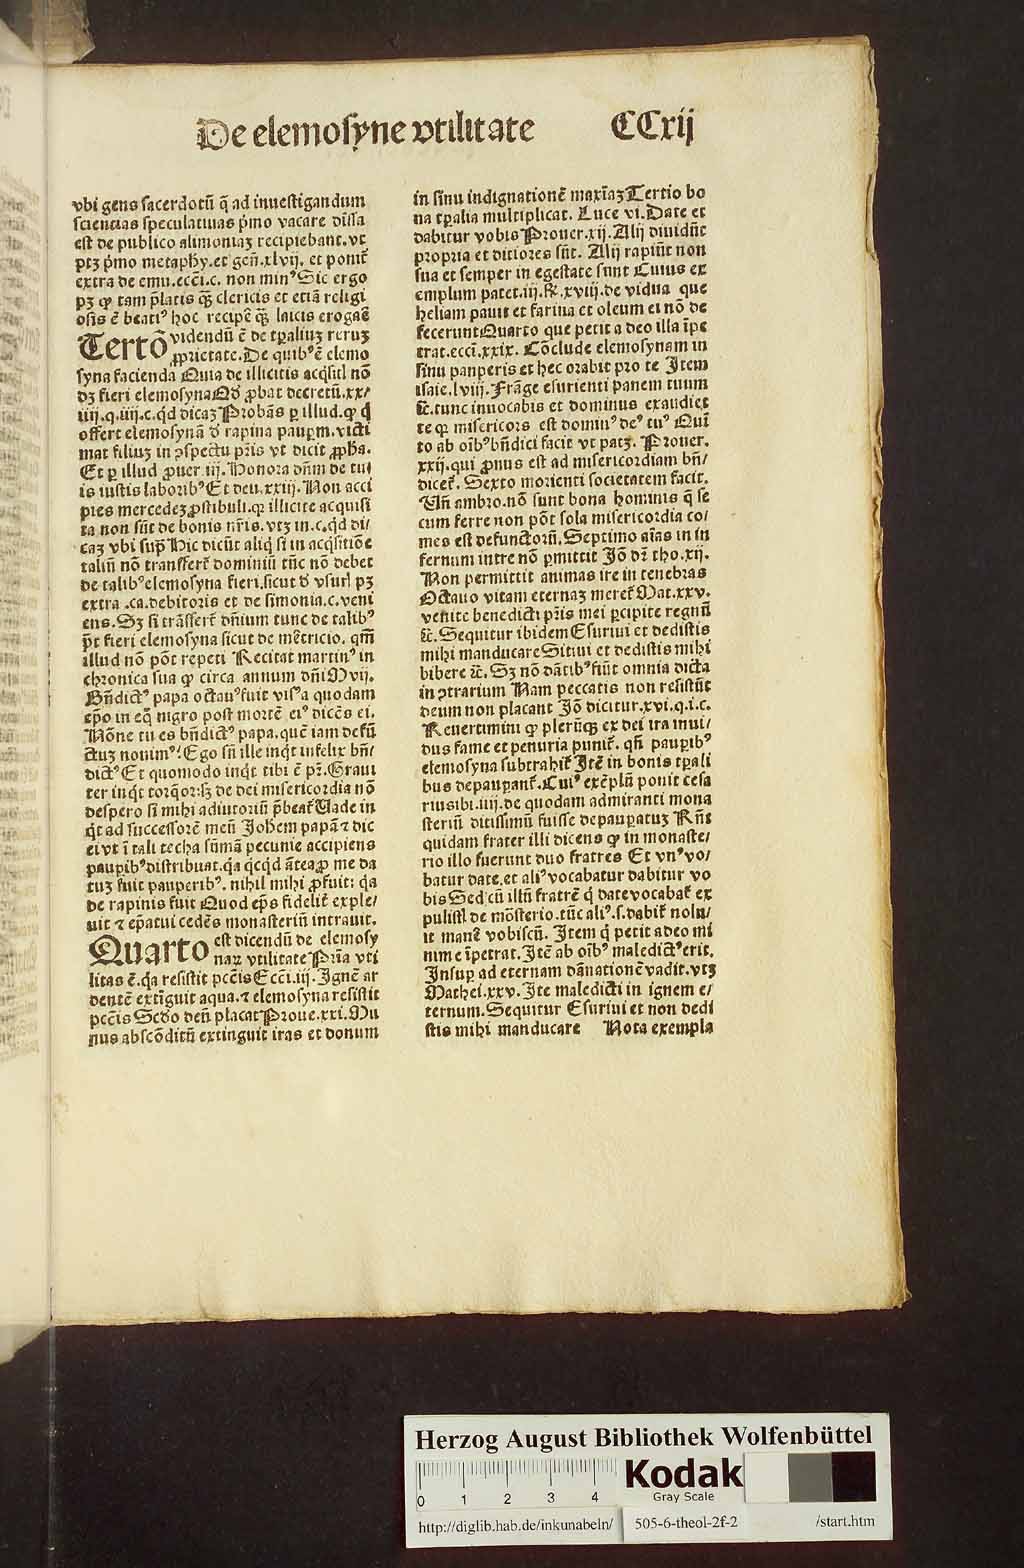 De elemosyne vtilitate CCxij
vbi gens sacerdotũ q̃ ad inuestigandum
sciencias speculatiuas p̃mo vacare dissa
est de publico alimoniaʒ recipiebant. vt
ptʒ p̃mo metaphy. et geñ. xlvij. et poniť
extra de emu. ecci. c. non minꝰ Sic ergo
pʒ ꝙ tam p̃latis q̃ʒ clericis et etiã religi
osis ẽ beatiꝰ hoc recipe q̃ʒ laicis erogaẽ
Tertõ videndũ ẽ de tꝑaliuʒ reruʒ
ꝓprietate. De quibꝰ ẽ elemo
syna facienda Quia de illicitis acq̃sitl nõ
dʒ fieri elemosyna Qđ ꝓbat decretũ. xx/
iiij. q. iiij. c. qđ dicaʒ Probãs ꝑ illud. ꝙ q̃
offert elemosynã đ rapina pauꝑm. victi
mat filiuʒ in ↄspectu pris vt dicit ꝓpha.
Et ꝑ illud ꝓuer. iij. Honora dñm de tui
is iustis laboribꝰ Et deu. xxiij. Non acci
pies mercedeʒ ꝓstibuli. ꝙ illicite acquisi
ta non sũt de bonis nris. vtʒ in. c. qđ di/
caʒ vbi sup̃ Hic dicũt aliq̃ si in acq̃sitiõe
taliũ nõ transferť dominiũ tũc nõ debet
de talibꝰ elemosyna fieri. sicut đ vsurl pʒ
extra .ca. debitoris et de simonia. c. veni
ens. Sʒ si trãsferť dñium tunc de talibꝰ
p̃t fieri elemosyna sicut de meretricio. qm̃
illud nõ põt repeti Recitat martinꝰ in
chronica sua ꝙ circa annum dñi M vij.
Bñdictꝰ papa octauꝰ fuit visꝰ a quodam
epo in eq̃ nigro post mortẽ eiꝰ dicẽs ei.
Nõne tu es bñdictꝰ papa. quẽ iam defũ
ctuʒ nouimꝰ: Ego sũ ille inq̃t infelix bñ/
dictꝰ Et quomodo inq̃t tibi ẽ pr. Graui
ter inq̃t torq̃or: sʒ de dei misericordia nõ
despero si mihi adiutoriũ p̃beať Vade in
q̃t ad successorẽ meũ Johem papã ⁊ dic
ei vt ĩ tali techa sũmã pecunie accipiens
pauꝑibꝰ distribuat. q̃a qcqđ ãtea ꝓ me da
tuʒ fuit pauperibꝰ. nihil mihi ꝓfuit: q̃a
de rapinis fuit Quod eps fideliť exple/
uit ⁊ epatui cedẽs monasteriũ intrauit.
Quarto est dicendũ de elemosy
naꝝ vtilitate Prĩa vti
litas ẽ. q̃a resistit pccis Ecci. iij. Ignẽ ar
dentẽ extĩguit aqua. ⁊ elemosyna resistit
pccis Sedo deũ placat Proue. xxi. Mu
nus abscõditũ extinguit iras et donum
in sinu indignationẽ maxĩaʒ Tertio bo
na tꝑalia multiplicat. Luce vi. Date et
dabitur vobis Prouer. xij. Alij diuidũt
propria et ditiores sũt. Alij rapiũt non
sua et semper in egestate sunt Cuius ex
emplum patet. iij. R. xviij. de vidua que
heliam pauit et farina et oleum ei nõ de
fecerunt Quarto que petit a deo illa ĩpe
trat. ecci. xxix. Cõclude elemosynam in
sinu pauperis et hec orabit pro te Item
isaie. lviii. Frãge esurienti panem tuum
⁊c. tunc inuocabis et dominus exaudiet
te ꝙ misericors est dominꝰ deꝰ tuꝰ Quĩ
to ab oĩbꝰ bñdici facit vt patʒ. Prouer.
xxij. qui ꝓnus est ad misericordiam bñ/
diceť. Sexto morienti societatem facit.
Vñ ambro. nõ sunt bona hominis q̃ se
cum ferre non põt sola misericordia co/
mes est defunctorũ. Septimo aĩas in in
fernum intre nõ ꝑmittit Jõ đr tho. xij.
Non permittit animas ire in tenebras
Octauo vitam eternaʒ mereť Mat. xxv.
venite benedicti pris mei ꝑcipite regnũ
⁊c. Sequitur ibidem Esuriui et dedistis
mihi manducare Sitiui et dedistis mihi
bibere ⁊c. Sʒ nõ dãtibꝰ fiũt omnia dicta
in ↄtrarium Nam peccatis non resistũt
deum non placant Jõ dicitur. xvi. q. i. c.
Reuertimini ꝙ plerũqʒ ex dei ira inui/
dus fame et penuria puniť. qñ pauꝑibꝰ
elemosyna subtrahiť Itẽ in bonis tꝑali
bus depauꝑanť. Cuiꝰ exẽplũ ponit cesa
rius ibi. iiij. de quodam admiranti mona
steriũ ditissimũ fuisse depauꝑatuʒ Rñt
quidam frater illi dicens ꝙ in monaste/
rio illo fuerunt duo fratres Et vnꝰ vo/
batur date. et aliꝰ vocabatur dabitur vo
bis Sed cũ illũ fratrẽ q̃ date vocabať ex
pulistl de mõsterio. tũc aliꝰ. s. dabiť nolu/
it manẽ vobiscũ. Item q̃ petit a deo mi
nime ĩpetrat. Itẽ ab oĩbꝰ maledictꝰ erit.
Insuꝑ ad eternam dãnationẽ vadit. vtʒ
Mathei. xxv. Ite maledicti in ignem e/
ternum. Sequitur Esuriui et non dedi
stis mihi manducare Nota exempla
Herzog August Bibliothek Wolfenbüttel
0 1 2 3 4
Kodak
Gray Scale
http://diglib.hab.de/inkunabeln/ 505-6-theol-2f-2 /start.htm